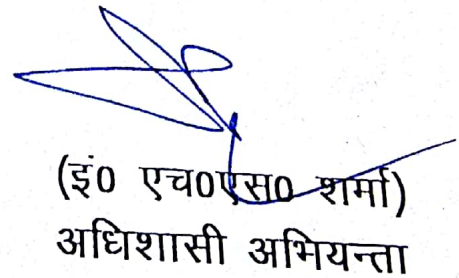 (इं० एच०एस० शर्मा)
अधिशासी अभियन्ता